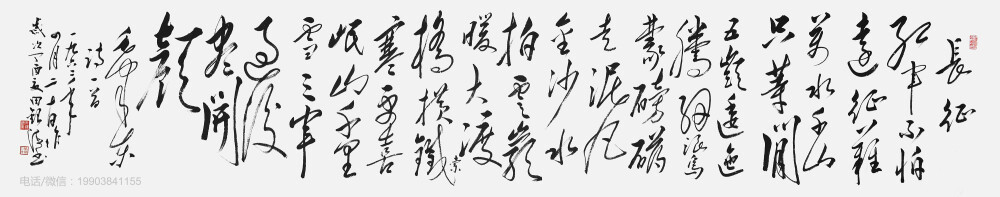 長征
紅軍不怕
遠征難
萬水千山
只等閒
五嶺逶迤
騰細浪烏
蒙磅礴
走泥丸
金沙水
拍雲巖
暖大渡
橋橫鐵索
寒更喜
岷山千里
雪三軍
過後
盡開
顏
毛澤東
詩一首
一九三年
月二十日作
歲次丁酉夏田書
电话/微信：19903841155